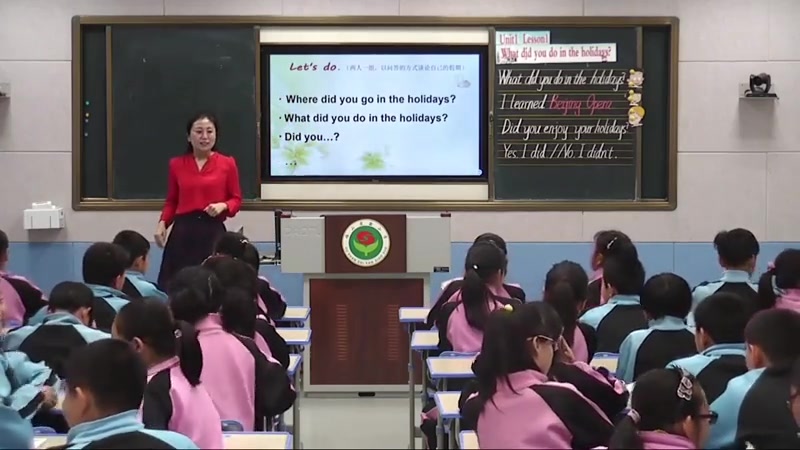 Let's do.
Where did you go in the holidays?
What did you do in the holidays?
Did you...?
...
Unit1 Lesson1
What did you do in the holidays?
What did you do in the holidays?
I learned Beijing Opera
Did you enjoy your holidays?
Yes. I did / No. I didn't.